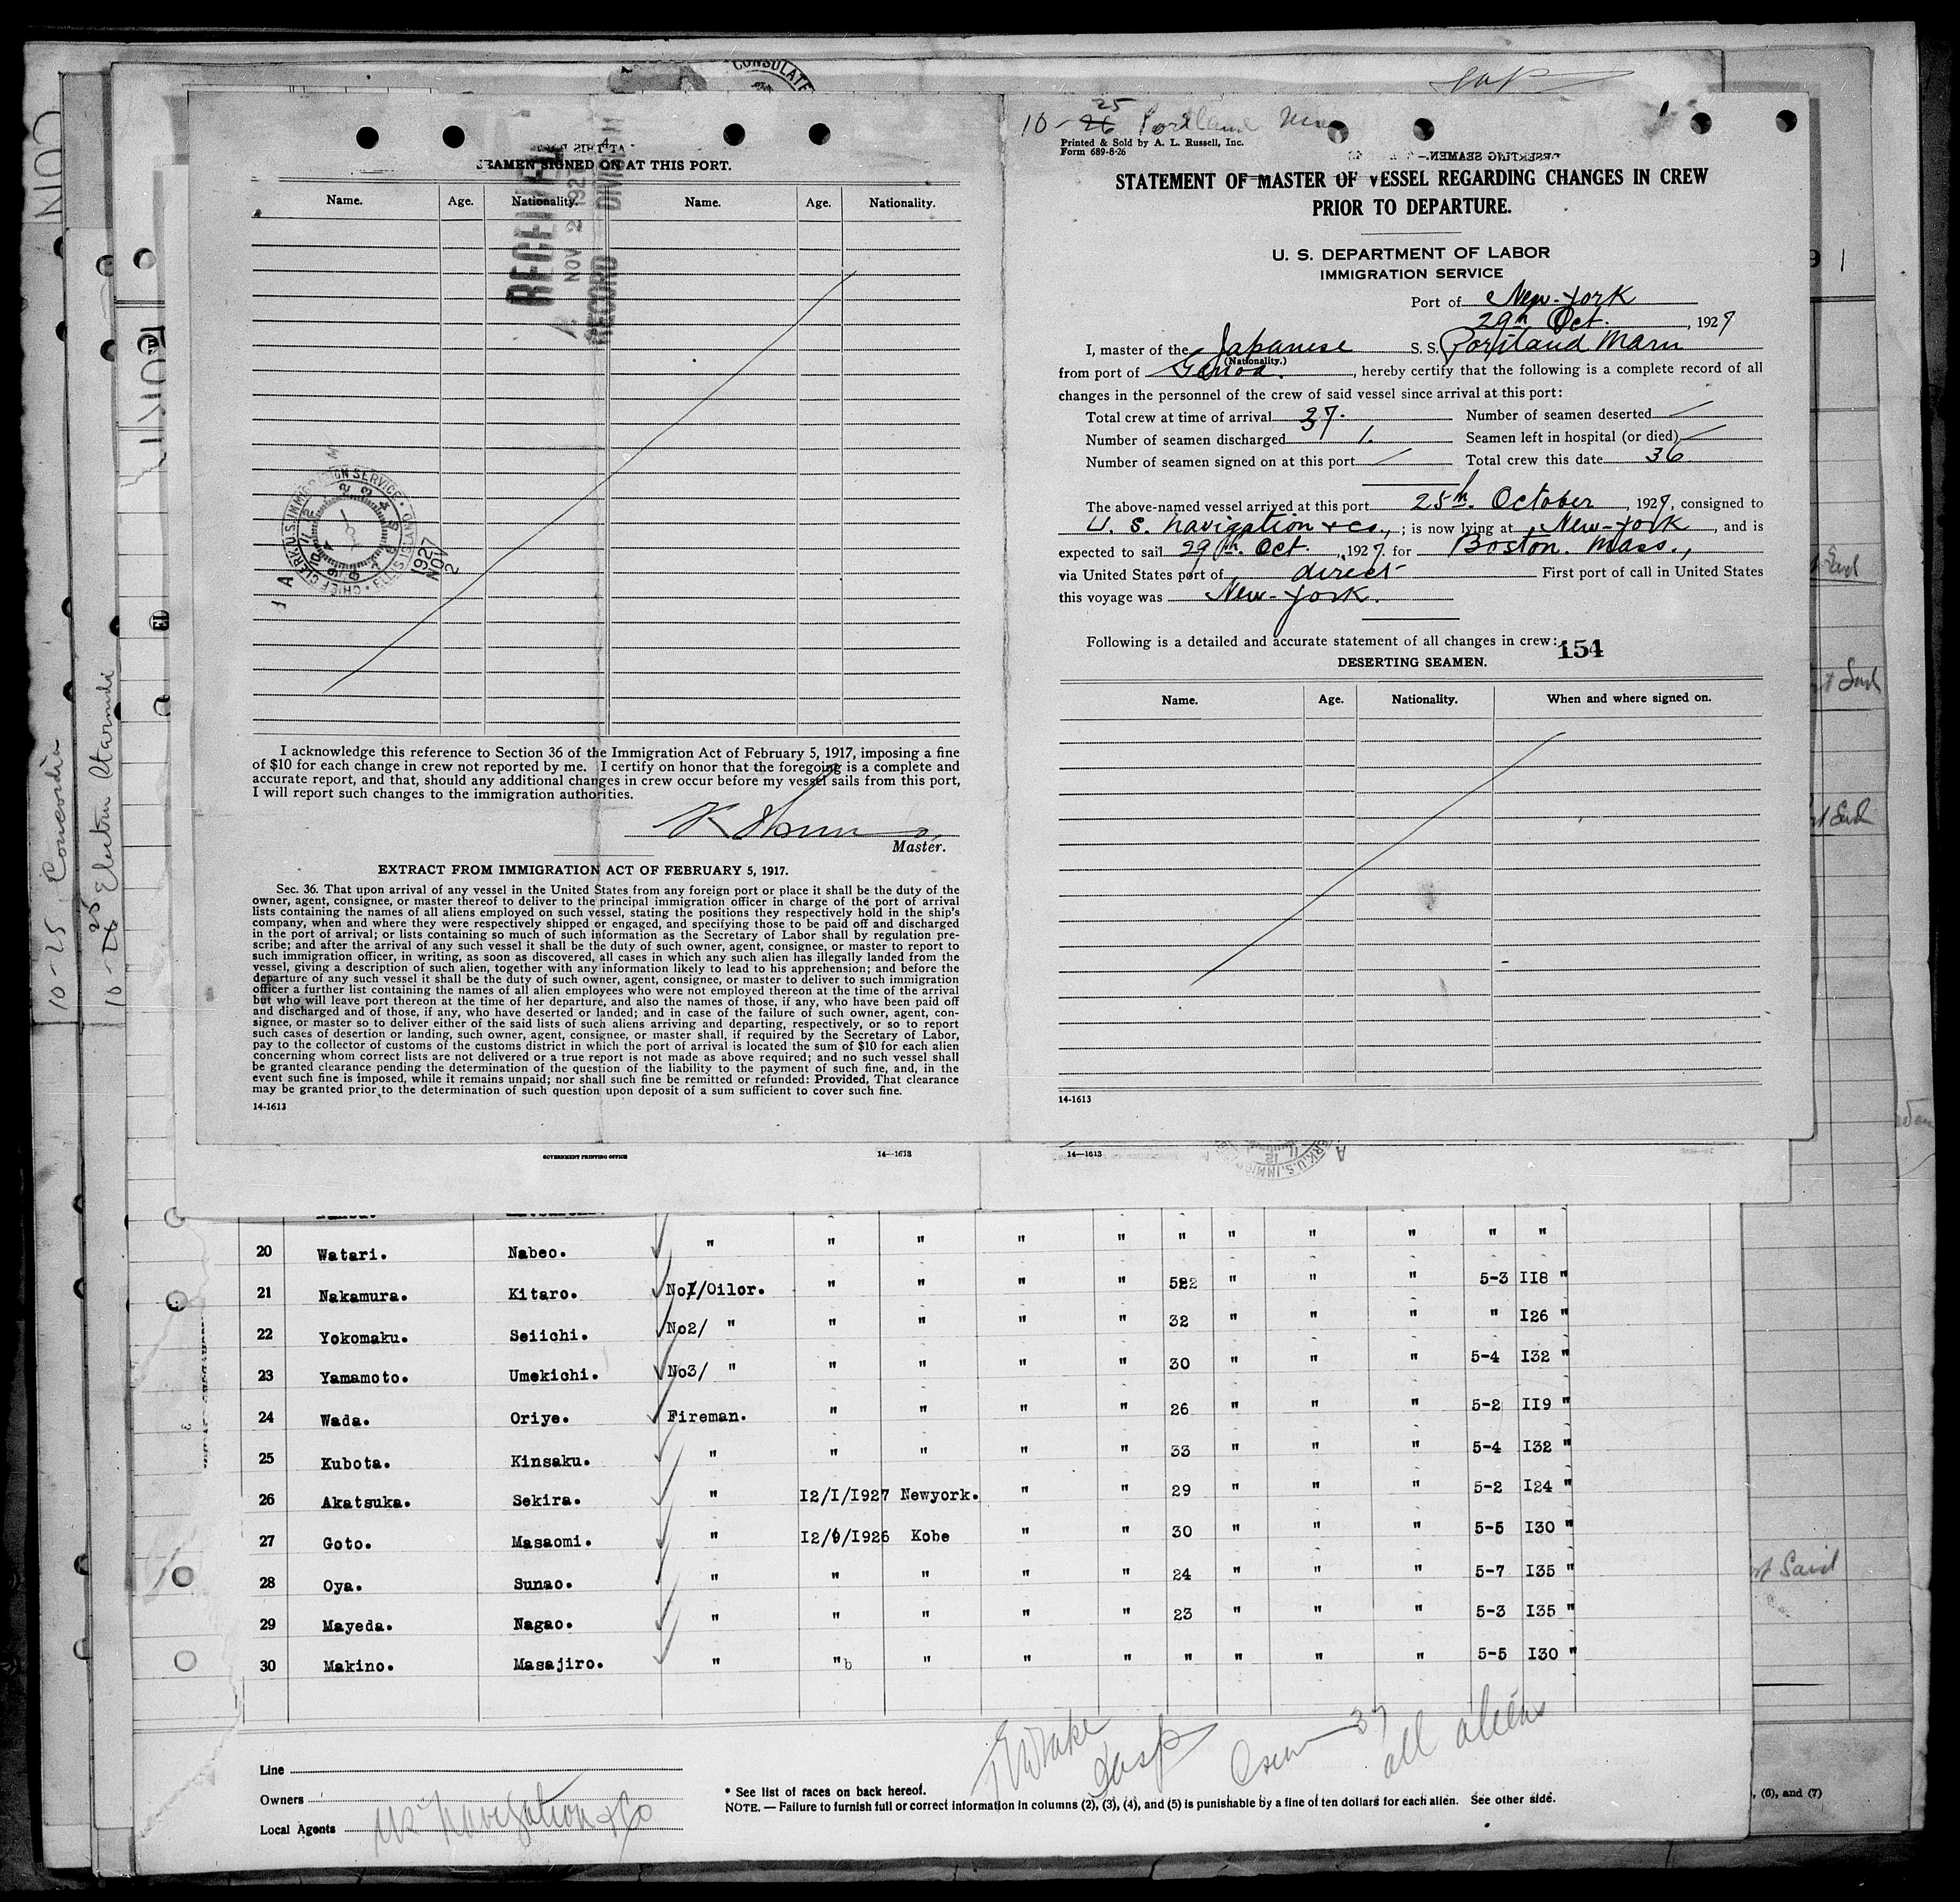 CONSULATE
SEAMEN SIGNED ON AT THIS PORT.
Name. Age. Nationality. Name. Age. Nationality.
RECEIVED
NOV 2 1927
RECORD DIVISION
CHIEF CLERK, U.S. IMMIGRATION SERVICE · ELLIS ISLAND
1927
NOV
2
I acknowledge this reference to Section 36 of the Immigration Act of February 5, 1917, imposing a fine
of $10 for each change in crew not reported by me. I certify on honor that the foregoing is a complete and
accurate report, and that, should any additional changes in crew occur before my vessel sails from this port,
I will report such changes to the immigration authorities.
Master.
EXTRACT FROM IMMIGRATION ACT OF FEBRUARY 5, 1917.
Sec. 36. That upon arrival of any vessel in the United States from any foreign port or place it shall be the duty of the
owner, agent, consignee, or master thereof to deliver to the principal immigration officer in charge of the port of arrival
lists containing the names of all aliens employed on such vessel, stating the positions they respectively hold in the ship's
company, when and where they were respectively shipped or engaged, and specifying those to be paid off and discharged
in the port of arrival; or lists containing so much of such information as the Secretary of Labor shall by regulation pre-
scribe; and after the arrival of any such vessel it shall be the duty of such owner, agent, consignee, or master to report to
such immigration officer, in writing, as soon as discovered, all cases in which any such alien has illegally landed from the
vessel, giving a description of such alien, together with any information likely to lead to his apprehension; and before the
departure of any such vessel it shall be the duty of such owner, agent, consignee, or master to deliver to such immigration
officer a further list containing the names of all alien employees who were not employed thereon at the time of the arrival
but who will leave port thereon at the time of her departure, and also the names of those, if any, who have been paid off
and discharged and of those, if any, who have deserted or landed; and in case of the failure of such owner, agent, con-
signee, or master so to deliver either of the said lists of such aliens arriving and departing, respectively, or so to report
such cases of desertion or landing, such owner, agent, consignee, or master shall, if required by the Secretary of Labor,
pay to the collector of customs of the customs district in which the port of arrival is located the sum of $10 for each alien
concerning whom correct lists are not delivered or a true report is not made as above required; and no such vessel shall
be granted clearance pending the determination of the question of the liability to the payment of such fine, and, in the
event such fine is imposed, while it remains unpaid; nor shall such fine be remitted or refunded: Provided, That clearance
may be granted prior to the determination of such question upon deposit of a sum sufficient to cover such fine.
14-1613
25
10-26 Portland Maru
Printed & Sold by A. L. Russell, Inc.
Form 689-8-26
STATEMENT OF MASTER OF VESSEL REGARDING CHANGES IN CREW
PRIOR TO DEPARTURE.
U. S. DEPARTMENT OF LABOR
IMMIGRATION SERVICE
Port of New-York
29th Oct. , 1927
I, master of the Japanese S. S. Portland Maru
(Nationality.)
from port of Genoa. , hereby certify that the following is a complete record of all
changes in the personnel of the crew of said vessel since arrival at this port:
Total crew at time of arrival 37. Number of seamen deserted
Number of seamen discharged 1. Seamen left in hospital (or died)
Number of seamen signed on at this port Total crew this date 36
The above-named vessel arrived at this port 25th. October , 1927, consigned to
U. S. Navigation & Co., ; is now lying at New-York , and is
expected to sail 29th. Oct. , 1927. for Boston. Mass.,
via United States port of direct First port of call in United States
this voyage was New-York.
Following is a detailed and accurate statement of all changes in crew:
154
DESERTING SEAMEN.
Name. Age. Nationality. When and where signed on.
14-1613
GOVERNMENT PRINTING OFFICE 14—1613 14—1613
20 Watari. Nabeo. " " " " " " " " " " "
21 Nakamura. Kitaro. No1/Oilor. " " " " 522 " " " 5-3 II8 "
22 Yokomaku. Seiichi. No2/ " " " " " 32 " " " " I26 "
23 Yamamoto. Umekichi. No3/ " " " " " 30 " " " 5-4 I32 "
24 Wada. Oriye. Fireman. " " " " 26 " " " 5-2 II9 "
25 Kubota. Kinsaku. " " " " " 33 " " " 5-4 I32 "
26 Akatsuka. Sekira. " I2/I/I927 Newyork. " " 29 " " " 5-2 I24 "
27 Goto. Masaomi. " I2/6/I926 Kobe " " 30 " " " 5-5 I30 "
28 Oya. Sunao. " " " " " 24 " " " 5-7 I35 "
29 Mayeda. Nagao. " " " " " 23 " " " 5-3 I35 "
30 Makino. Masajiro. " " " " " " " " " 5-5 I30 "
Crew 37
all aliens
Line
Owners
Local Agents US Navigation & Co
* See list of races on back hereof.
NOTE. — Failure to furnish full or correct information in columns (2), (3), (4), and (5) is punishable by a fine of ten dollars for each alien. See other side.
, (6), and (7)
10-25 Concordia